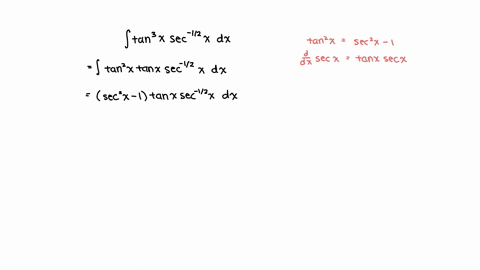 ∫ tan³x sec^(-1/2) x dx
= ∫ tan²x tanx sec^(-1/2) x dx
= (sec²x - 1) tanx sec^(-1/2) x dx
tan²x = sec²x - 1
d/dx sec x = tanx secx